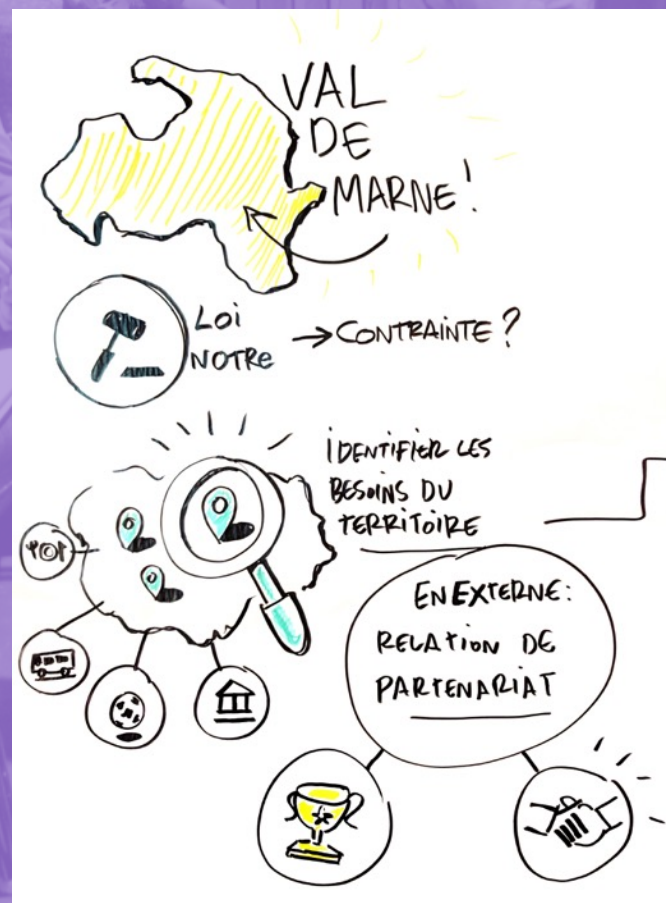 VAL
DE
MARNE!
LOI
NOTRe
→ CONTRAINTE ?
IDENTIFIER LES
BESOINS DU
TERRITOIRE
EN EXTERNE:
RELATION DE
PARTENARIAT